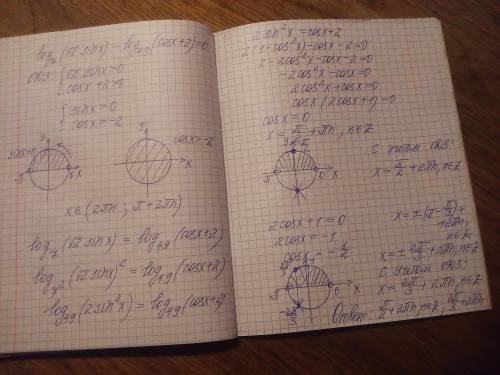 log₇(√2 sinx) − log₄₉(cosx+2)=0
ОДЗ: {√2 sinx>0
cosx+2>0
{sinx>0
cosx>-2
sinx>0
y
π
0
x
cosx>-2
y
x
x∈(2πn ; π+2πn)
log₇(√2 sinx) = log₄₉(cosx+2)
log₇²(√2 sinx)² = log₄₉(cosx+2)
log₄₉(2sin²x) = log₄₉(cosx+2)
2sin²x = cosx+2
2(1-cos²x)-cosx-2=0
2-2cos²x-cosx-2=0
-2cos²x-cosx=0
2cos²x+cosx=0
cosx(2cosx+1)=0
cosx=0
x = π/2 + πn, n∈Z
с учётом ОДЗ:
x = π/2 + 2πn, n∈Z
2cosx+1=0
2cosx=-1
cosx = -1/2
x = ±(π - π/3) + 2πn, n∈Z
x = ± 2π/3 + 2πn, n∈Z
с учётом ОДЗ:
x = 2π/3 + 2πn, n∈Z
Ответ: π/2 + 2πn, n∈Z, 2π/3 + 2πn